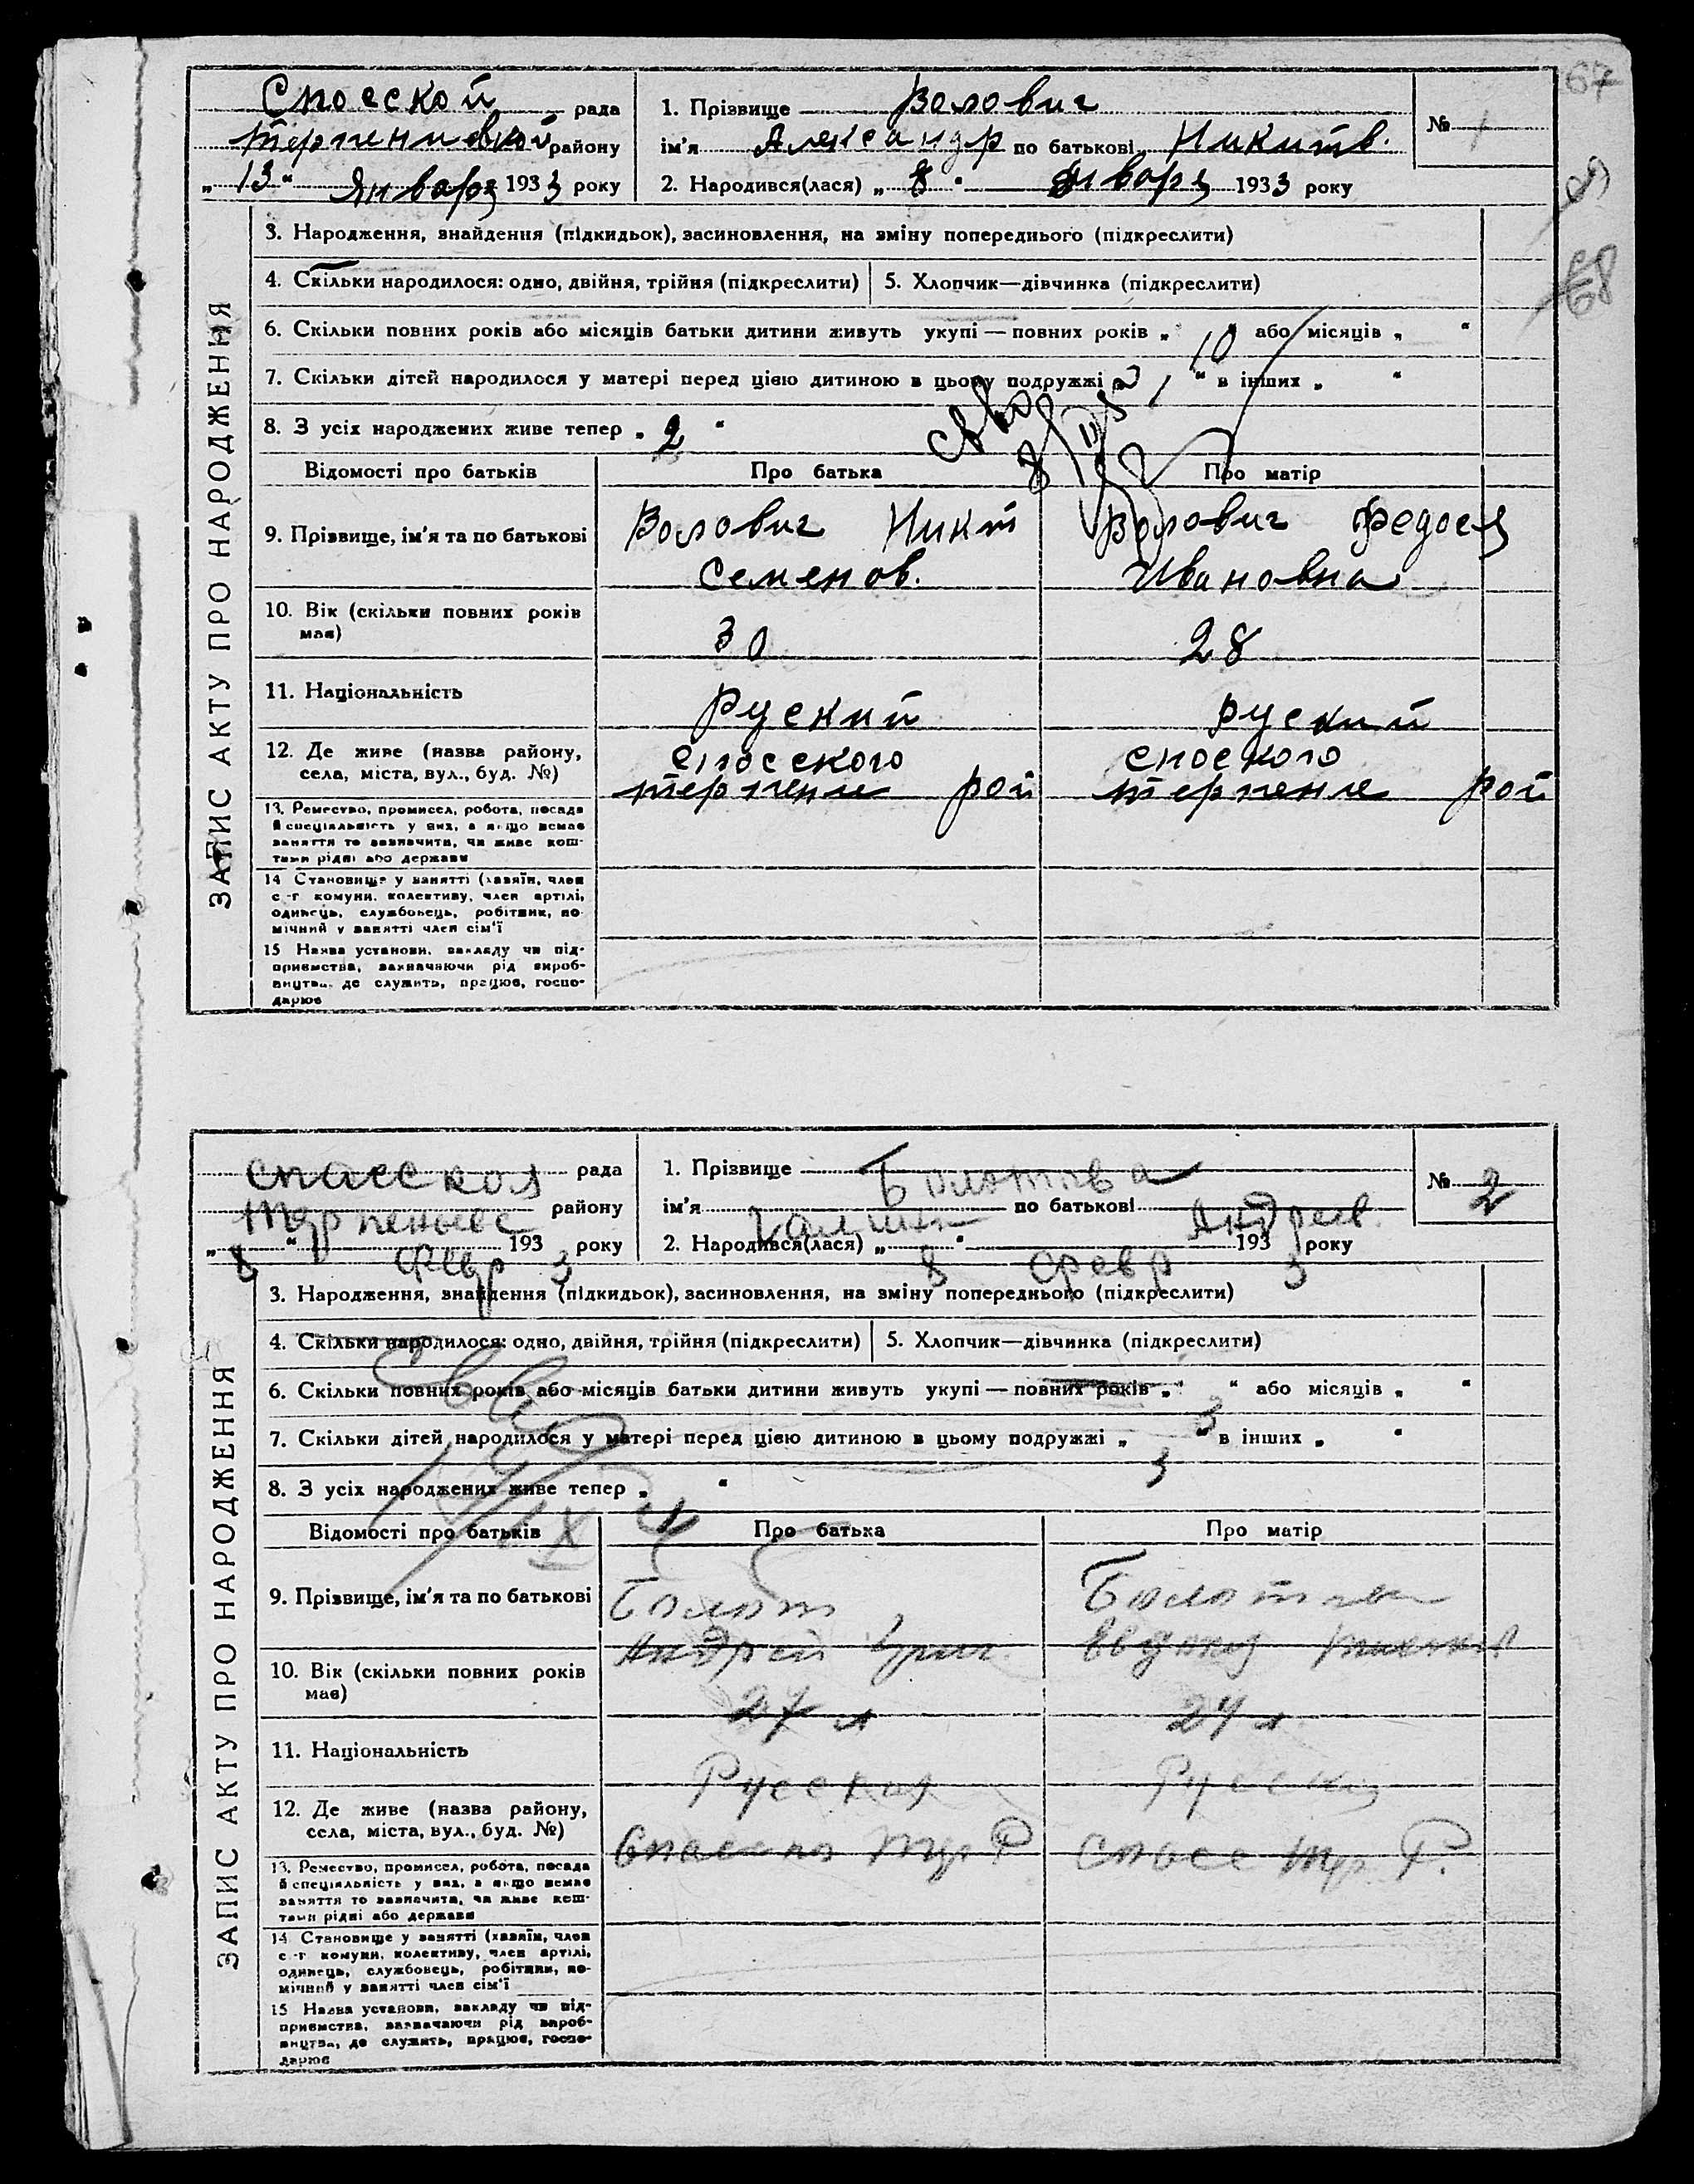 67
68
Споєской рада
Терпениевкой району
„ 13 “ Января 1933 року
1. Прізвище Волович
ім'я Александр по батькові Никитв.
2. Народився(лася) „ 8 “ Января 1933 року
№ 1
ЗАПИС АКТУ ПРО НАРОДЖЕННЯ
3. Народження, знайдення (підкидьок), засиновлення, на зміну попереднього (підкреслити)
4. Скільки народилося: одно, двійня, трійня (підкреслити) 5. Хлопчик—дівчинка (підкреслити)
6. Скільки повних років або місяців батьки дитини живуть укупі — повних років „ 10 “ або місяців „ “
7. Скільки дітей народилося у матері перед цією дитиною в цьому подружжі „ “ в інших „ “
8. З усіх народжених живе тепер „ 2 “
Відомості про батьків Про батька Про матір
9. Прізвище, ім'я та по батькові Волович Никит Волович Федося
Семенов. Ивановна
10. Вік (скільки повних років має) 30 28
11. Національність Руский руский
12. Де живе (назва району, споеского споского
села, міста, вул., буд. №) терпение рой терпение рой
13. Ремество, промисел, робота, посада
й спеціальність у них, а якщо немає
заняття то зазначити, чи живе кош-
тами рідні або держави
14 Становище у занятті (хазяїн, член
с.-г комуни, колективу, член артілі,
одинець, службовець, робітник, по-
мічний у занятті член сім'ї
15 Назва установи, закладу чи під-
приємства, зазначаючи рід вироб-
ництва, де служить, працює, госпо-
дарює
спасская рада
району
„ 8 “ Февр 1933 року
1. Прізвище Болотова
ім'я Галина по батькові Андреев.
2. Народився(лася) „ 8 “ Февр 1933 року
№ 2
ЗАПИС АКТУ ПРО НАРОДЖЕННЯ
3. Народження, знайдення (підкидьок), засиновлення, на зміну попереднього (підкреслити)
4. Скільки народилося: одно, двійня, трійня (підкреслити) 5. Хлопчик—дівчинка (підкреслити)
6. Скільки повних років або місяців батьки дитини живуть укупі — повних років „ 3 “ або місяців „ “
7. Скільки дітей народилося у матері перед цією дитиною в цьому подружжі „ 3 “ в інших „ “
8. З усіх народжених живе тепер „ “
Відомості про батьків Про батька Про матір
9. Прізвище, ім'я та по батькові Болот Болотова
Андрей
10. Вік (скільки повних років має) 27 л 24 л
11. Національність Русская Русская
12. Де живе (назва району,
села, міста, вул., буд. №) Спасско Тер Р Спасс Тер. Р.
13. Ремество, промисел, робота, посада
й спеціальність у них, а якщо немає
заняття то зазначити, чи живе кош-
тами рідні або держави
14. Становище у занятті (хазяїн, член
с.-г комуни, колективу, член артілі,
одинець, службовець, робітник, по-
мічний у занятті член сім'ї
15 Назва установи, закладу чи під-
приємства, зазначаючи рід вироб-
ництва, де служить, працює, госпо-
дарює